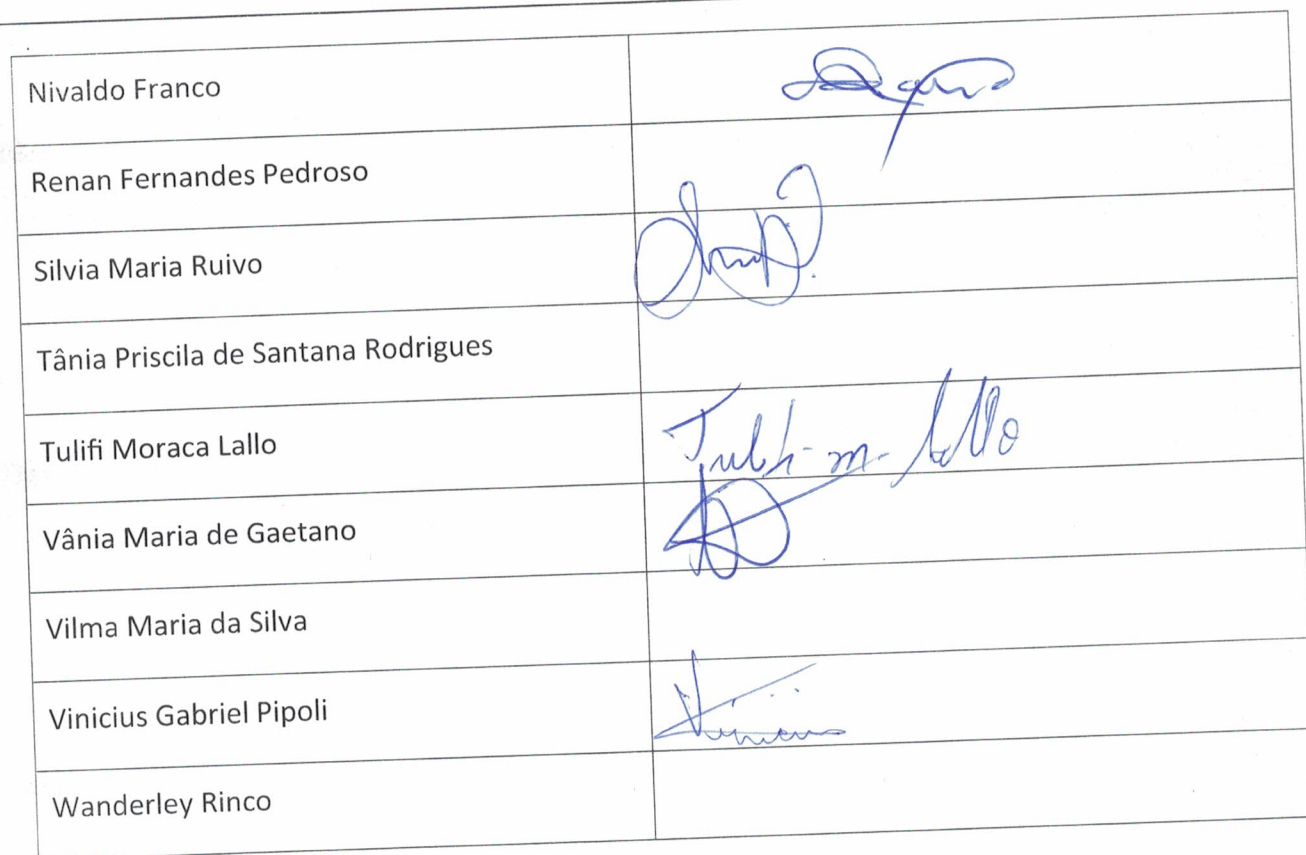 Nivaldo Franco
Renan Fernandes Pedroso
Silvia Maria Ruivo
Tânia Priscila de Santana Rodrigues
Tulifi Moraca Lallo
Tulifi m. Lallo
Vânia Maria de Gaetano
Vilma Maria da Silva
Vinicius Gabriel Pipoli
Vinicius
Wanderley Rinco